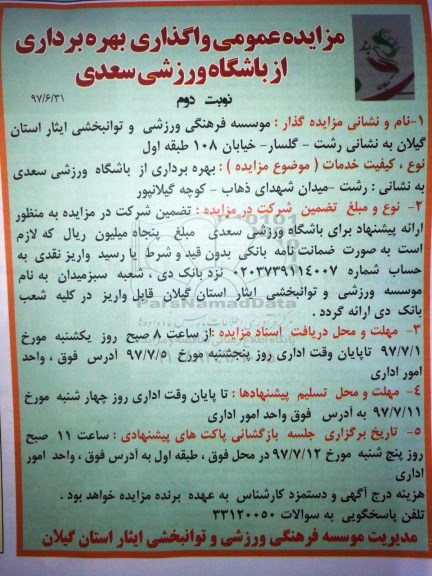 مزایده عمومی واگذاری بهره برداری
از باشگاه ورزشی سعدی
نوبت دوم
۹۷/۶/۳۱
۱-نام و نشانی مزایده گذار : موسسه فرهنگی ورزشی و توانبخشی ایثار استان
گیلان به نشانی رشت - گلسار- خیابان ۱۰۸ طبقه اول
نوع ، کیفیت خدمات ( موضوع مزایده ) : بهره برداری از باشگاه ورزشی سعدی
به نشانی : رشت -میدان شهدای ذهاب - کوچه گیلانپور
۲- نوع و مبلغ تضمین شرکت در مزایده : تضمین شرکت در مزایده به منظور
ارائه پیشنهاد برای باشگاه ورزشی سعدی مبلغ پنجاه میلیون ریال که لازم
است به صورت ضمانت نامه بانکی بدون قید و شرط یا رسید واریز نقدی به
حساب شماره ۰۲۰۳۷۳۹۱۱۴۰۰۷ نزد بانک دی ، شعبه سبزمیدان به نام
موسسه ورزشی و توانبخشی ایثار استان گیلان قابل واریز در کلیه شعب
بانک دی ارائه گردد .
۳- مهلت و محل دریافت اسناد مزایده : از ساعت ۸ صبح روز یکشنبه مورخ
۹۷/۷/۱ تا پایان وقت اداری روز پنجشنبه مورخ ۹۷/۷/۵ آدرس فوق ، واحد
امور اداری
۴- مهلت و محل تسلیم پیشنهادها : تا پایان وقت اداری روز چهار شنبه مورخ
۹۷/۷/۱۱ به آدرس فوق واحد امور اداری
۵- تاریخ برگزاری جلسه بازگشائی پاکت های پیشنهادی : ساعت ۱۱ صبح
روز پنج شنبه مورخ ۹۷/۷/۱۲ در محل فوق ، طبقه اول به آدرس فوق ، واحد امور
اداری
هزینه درج آگهی و دستمزد کارشناس به عهده برنده مزایده خواهد بود .
تلفن پاسخگویی به سوالات ۳۳۱۲۰۰۵۰
مدیریت موسسه فرهنگی ورزشی و توانبخشی ایثار استان گیلان
ParsNamadData